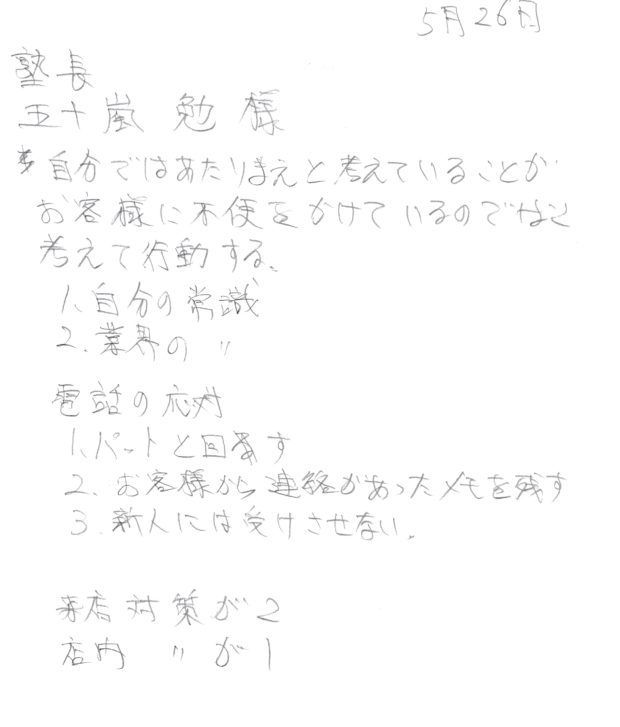 5月26日
塾長
五十嵐 勉 様
自分ではあたりまえと考えていることが
お客様に不便をかけているのではと
考えて行動する。
1、自分の常識
2.業界の 〃
電話の応対
1、パットと回す
2.お客様から連絡があったメモを残す
3.新人には受けさせない。
来店対策が2
店内 〃 が1